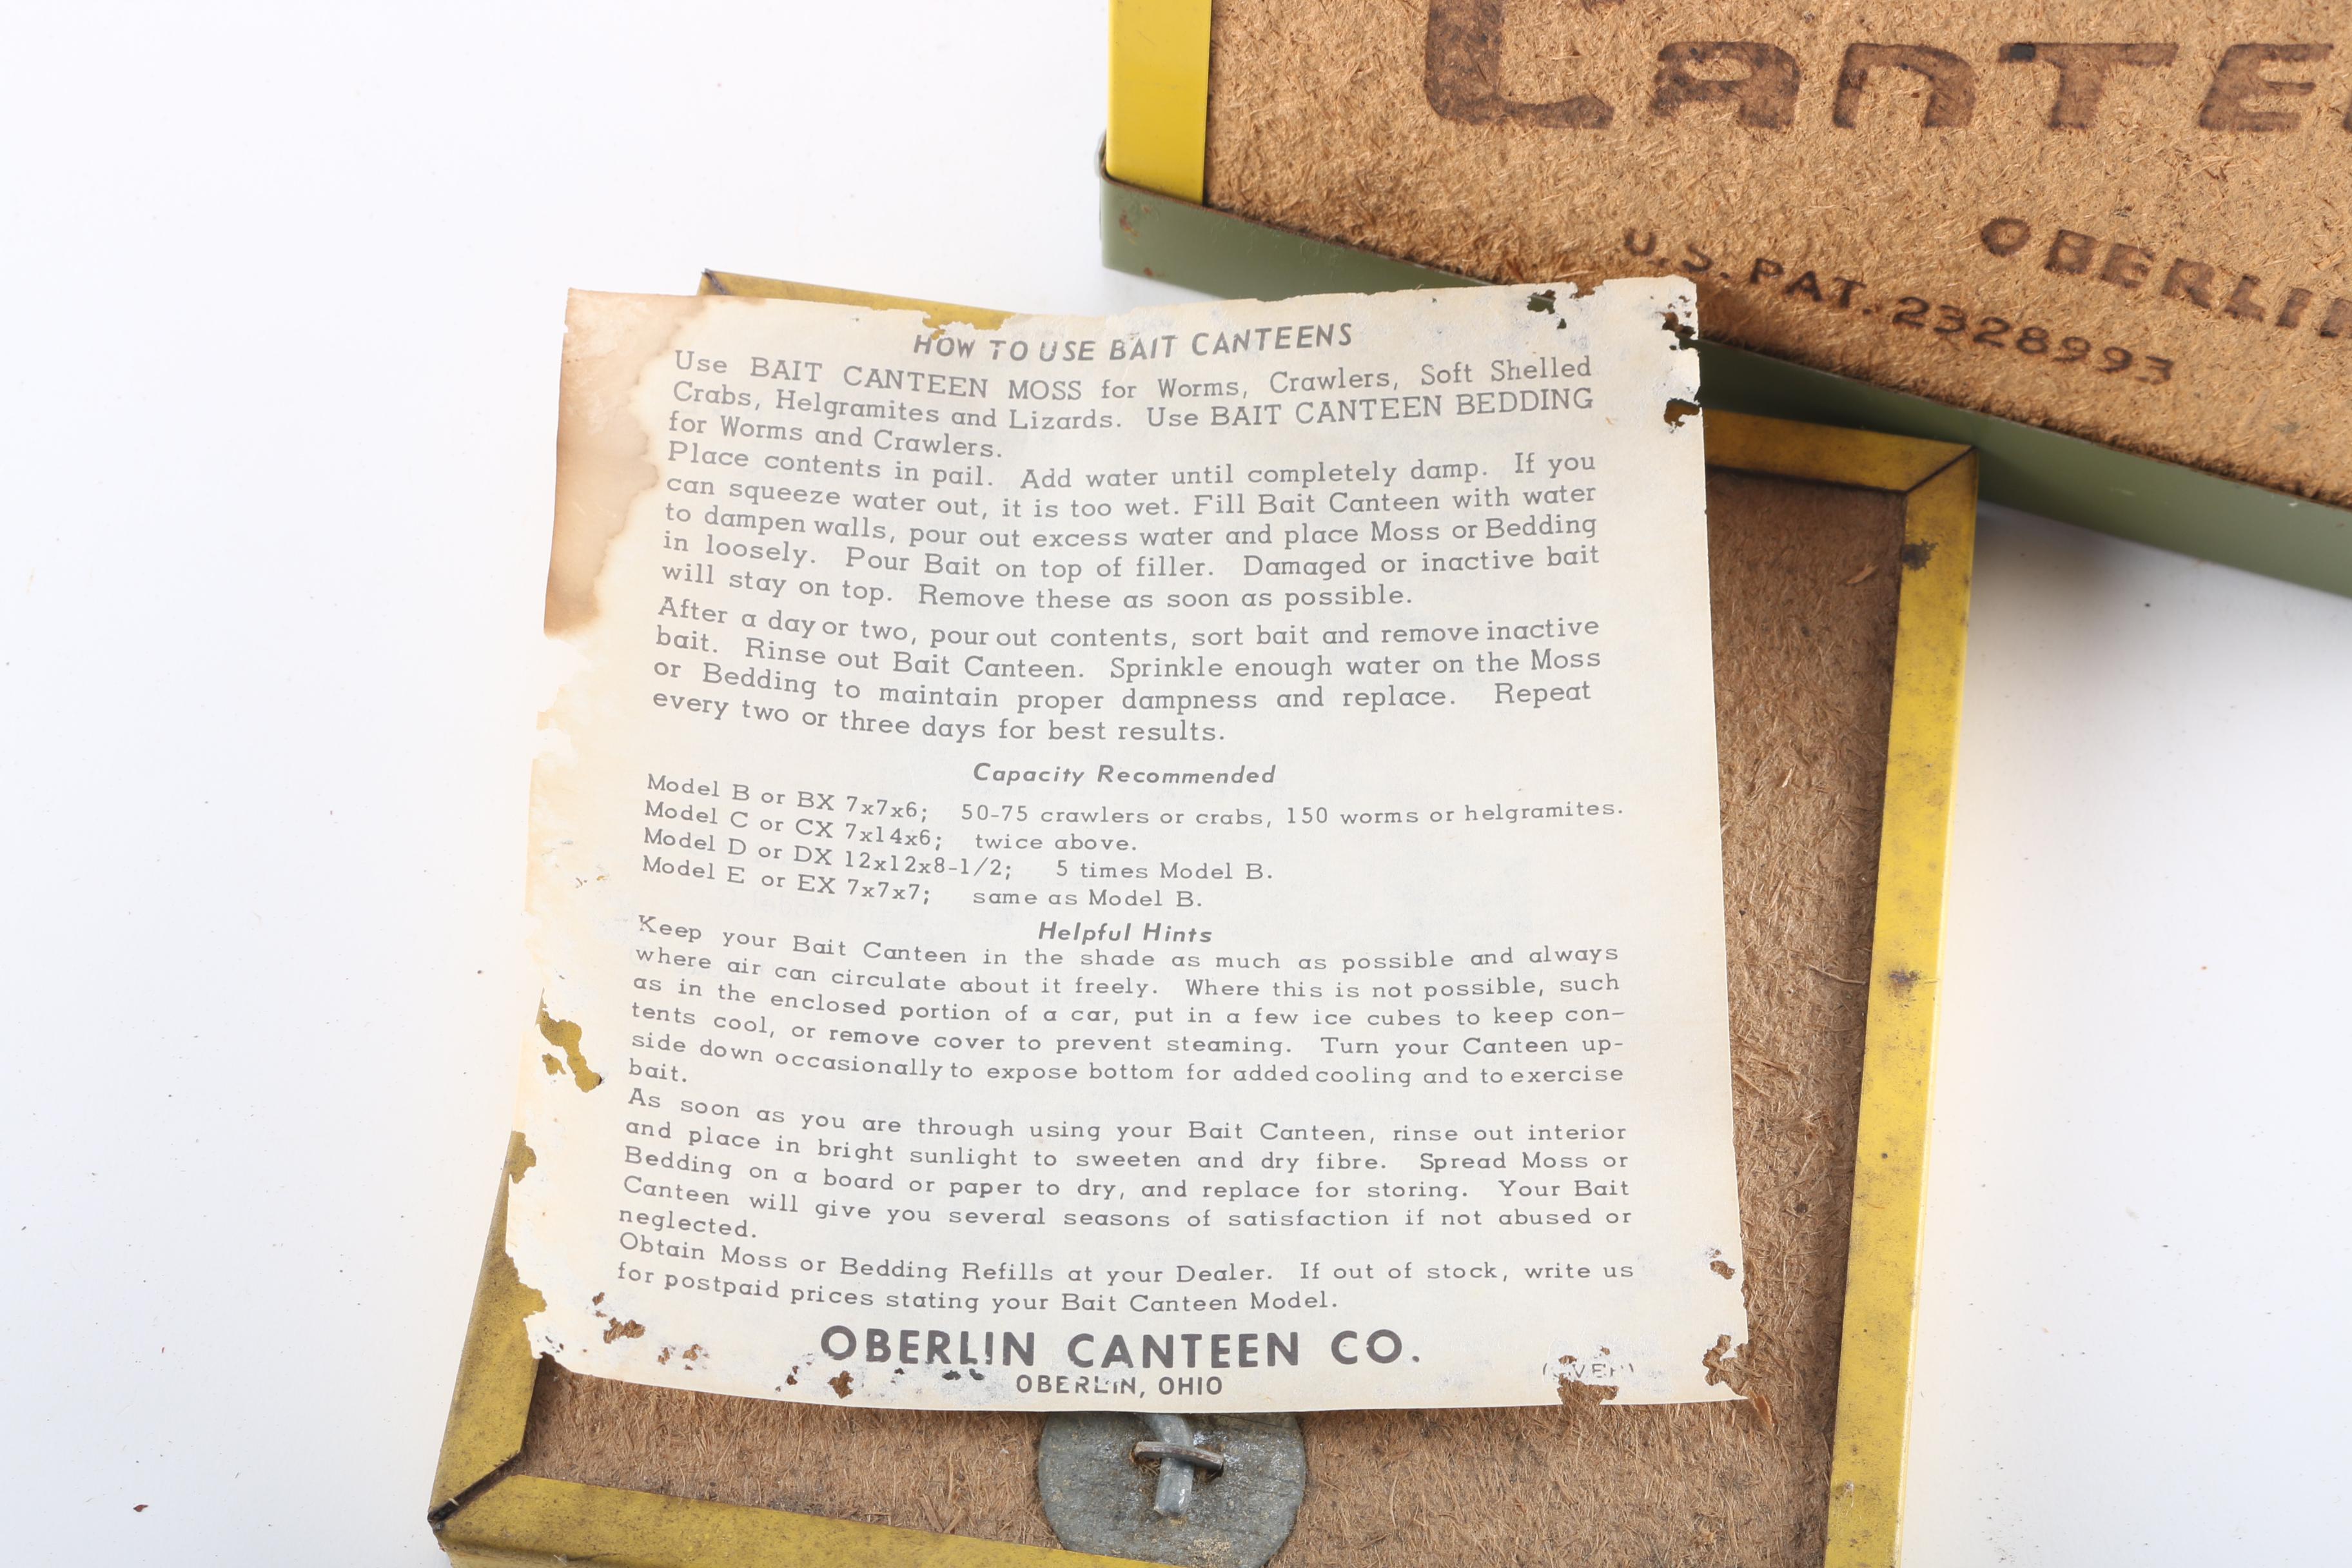 CANTE
OBERLIN
U.S. PAT. 2328993
HOW TO USE BAIT CANTEENS
Use BAIT CANTEEN MOSS for Worms, Crawlers, Soft Shelled
Crabs, Helgramites and Lizards. Use BAIT CANTEEN BEDDING
for Worms and Crawlers.
Place contents in pail. Add water until completely damp. If you
can squeeze water out, it is too wet. Fill Bait Canteen with water
to dampen walls, pour out excess water and place Moss or Bedding
in loosely. Pour Bait on top of filler. Damaged or inactive bait
will stay on top. Remove these as soon as possible.
After a day or two, pour out contents, sort bait and remove inactive
bait. Rinse out Bait Canteen. Sprinkle enough water on the Moss
or Bedding to maintain proper dampness and replace. Repeat
every two or three days for best results.
Capacity Recommended
Model B or BX 7x7x6; 50-75 crawlers or crabs, 150 worms or helgramites.
Model C or CX 7x14x6; twice above.
Model D or DX 12x12x8-1/2; 5 times Model B.
Model E or EX 7x7x7; same as Model B.
Helpful Hints
Keep your Bait Canteen in the shade as much as possible and always
where air can circulate about it freely. Where this is not possible, such
as in the enclosed portion of a car, put in a few ice cubes to keep con-
tents cool, or remove cover to prevent steaming. Turn your Canteen up-
side down occasionally to expose bottom for added cooling and to exercise
bait.
As soon as you are through using your Bait Canteen, rinse out interior
and place in bright sunlight to sweeten and dry fibre. Spread Moss or
Bedding on a board or paper to dry, and replace for storing. Your Bait
Canteen will give you several seasons of satisfaction if not abused or
neglected.
Obtain Moss or Bedding Refills at your Dealer. If out of stock, write us
for postpaid prices stating your Bait Canteen Model.
OBERLIN CANTEEN CO.
OBERLIN, OHIO
(OVER)